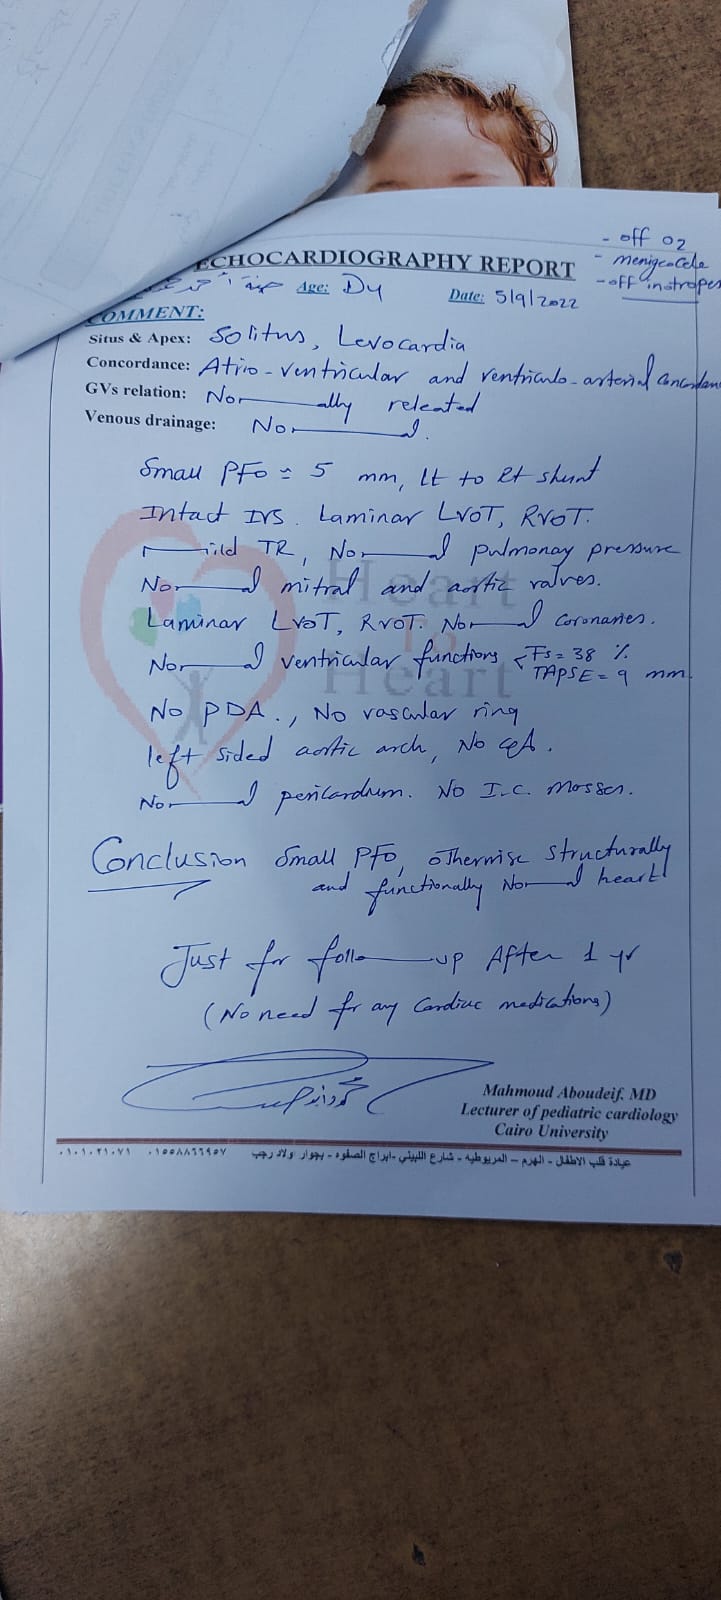 - off O2
- menigeocele
- off inotropes
ECHOCARDIOGRAPHY REPORT
Age: D4
Date: 5/9/2022
COMMENT:
Situs & Apex: Solitus, Levocardia
Concordance: Atrio-ventricular and ventriculo-arterial concordan
GVs relation: Normally releated
Venous drainage: Normal.
Small PFO ≈ 5 mm, Lt to Rt shunt
Intact IVS. Laminar LVOT, RVOT.
mild TR, Normal pulmonay pressure
Normal mitral and aortic valves.
Laminar LVOT, RVOT. Normal coronaries.
Normal ventricular functions < FS = 38 %
TAPSE = 9 mm.
No PDA., No vascular ring
left sided aortic arch, No CoA.
Normal pericardium. No I.C. masses.
Heart
To
Heart
Conclusion Small PFO, otherwise structurally
and functionally Normal heart
Just for follow up After 1 yr
(No need for any Cardiac medications)
Mahmoud Aboudeif. MD
Lecturer of pediatric cardiology
Cairo University
عيادة قلب الاطفال - الهرم - المريوطيه - شارع اللبيني - ابراج الصفوه - بجوار اولاد رجب ٠١٥٥٨٨٦٦٩٥٧ ٠١٠١٠٢١٠٧١